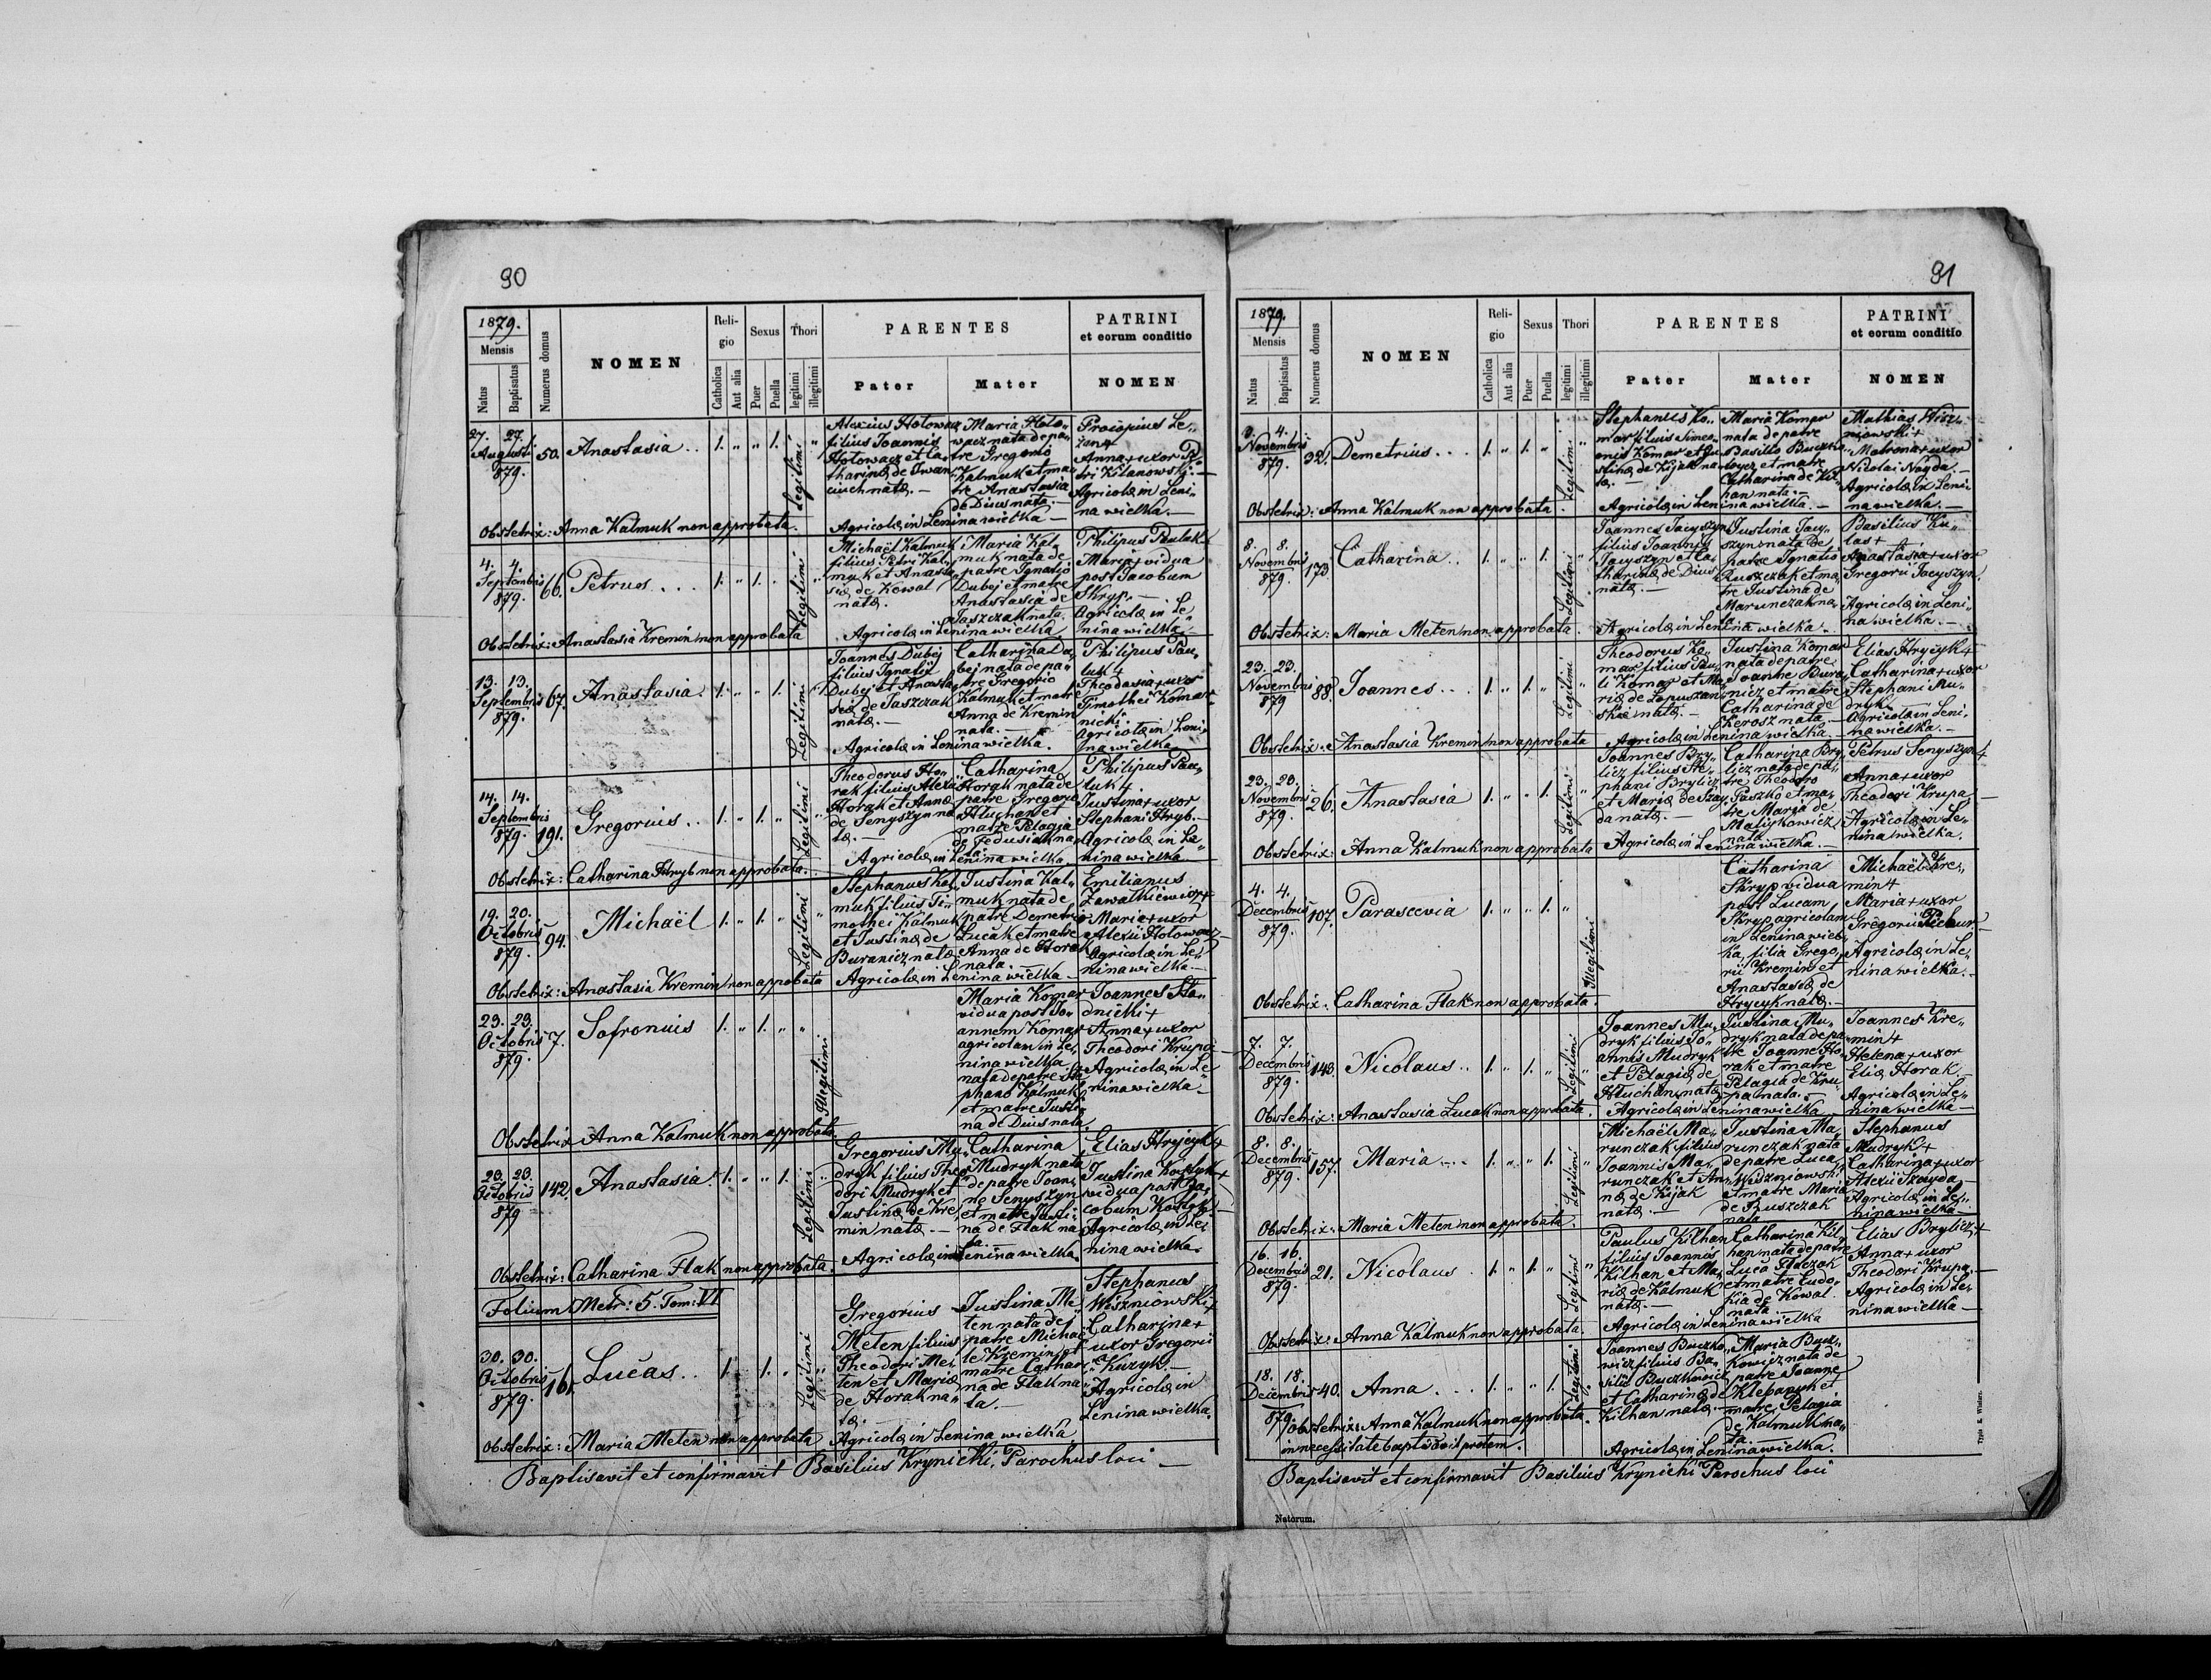 90
1879.
Mensis
Natus
Baptisatus
Numerus domus
NOMEN
Reli-
gio
Catholica
Aut alia
Sexus
Puer
Puella
Thori
legitimi
illegitimi
PARENTES
Pater
Mater
PATRINI
et eorum conditio
NOMEN
27. 27.
Augusti
879.
50.
Anastasia . .
1. „ „ 1.
Legitimi
Alexius Hotowacz
filius Joannis
Hotowacz et Ca-
tharinæ de Iwan
natæ. —
Maria Hoto-
wacz nata de pa-
tre Gregorio
Kalmuk et ma-
tre Anastasia
de Dius nata. —
Procopius Le-
Anna + uxor
Agricolæ in Leni-
na wielka. —
Obstetrix: Anna Kalmuk non approbata.
Agricolæ in Lenina wielka —
4. 4.
Septembris
879.
66.
Petrus . . .
1. „ 1. „
Legitimi
Michaël Kalmuk
filius Petri Kal-
muk et Anasta-
siæ de Kowal
natæ.
Maria Kal-
muk nata de
patre Ignatio
Dubej et matre
Anastasia de
Jaszczak nata.
Philipus Paulak
Maria + vidua
post Jacobum
Skryp. —
Agricolæ in Le-
nina wielka. —
Obstetrix: Anastasia Kremin non approbata
Agricolæ in Lenina wielka
13. 13.
Septembris
879.
67.
Anastasia.
1. „ „ 1.
Legitimi
Joannes Dubej
filius Ignatii
Dubej et Anasta-
siæ de Jaszczak
natæ. —
Catharina Du-
bej nata de pa-
tre Gregorio
Kalmuk et matre
Anna de Kremin
nata. —
Philipus Pau-
luk +
Theodosia + uxor
Timothei Komar-
nicki
Agricolæ in Leni-
na wielka
Agricolæ in Lenina wielka.
14. 14.
Septembris
879.
191.
Gregorius . .
1. „ 1. „
Legitimi
Theodorus Ho-
rak filius Alexii
Horak et Annæ
de Senyszyn na-
tæ. —
Catharina
Horak nata de
patre Gregorio
Hluchan et
matre Pelagia
de Fedusiak na-
ta.
Philipus Pau-
luk +
Justina + uxor
Stephani Hryb. —
Agricolæ in Le-
nina wielka
Agricolæ in Lenina wielka
Obstetrix: Catharina Hryb non approbata.
19. 20.
Octobris
879.
94.
Michaël
1. „ 1. „
Legitimi
Stephanus Kal-
muk filius Ti-
mothei Kalmuk
et Justinæ de
Buranicz natæ
Justina Kal-
muk nata de
patre Demetrio
Lucak et matre
Anna de Horak
nata. —
Emilianus
Zawalkiewicz +
Maria + uxor
Alexii Hotowacz
Agricolæ in Le-
nina wielka —
Obstetrix: Anastasia Kremin non approbata
Agricolæ in Lenina wielka —
23. 23.
Octobris
879.
7.
Sofronius
1. „ 1. „ „
Illegitimi
Maria Komar
vidua post Jo-
annem Komar
agricolam in Le-
nina wielka
nata de patre Ste-
phano Kalmuk
et matre Justi-
na de Dius nata
Joannes Sta-
dnicki +
Anna + uxor
Theodori Krupa
Agricolæ in Le-
nina wielka —
Obstetrix Anna Kalmuk non approbata.
23. 23.
Octobris
879
142.
Anastasia.
1. „ „ 1.
Legitimi
Gregorius Mu-
dryk filius Theo-
dori Mudryk et
Justinæ de Kre-
min natæ. —
Catharina
Mudryk nata
de patre Joan-
ne Senyszyn
et matre Justi-
na de Flak na-
ta. —
Elias Hrycyk +
Justina Kostyk +
vidua post Ja-
cobum Kostyk —
Agricolæ in Le-
nina wielka.
Obstetrix: Catharina Flak non approbata.
Agricolæ in Lenina wielka
Folium Metr: 5. Tom: VI
30. 30.
Octobris
879.
161.
Lucas . .
1. 1. „
Legitimi
Gregorius
Meten filius
Theodori Me-
ten et Mariæ
de Horak na-
tæ. —
Justina Me-
ten nata de
patre Michaë-
le Kremin et
matre Cathari-
na de Flak na-
ta. —
Stephanus
Wiszniowski +
Catharina +
uxor Gregorii
Kuzyk. —
Agricolæ in
Lenina wielka.
Obstetrix: Maria Meten non approbata
Agricolæ in Lenina wielka
Baptisavit et confirmavit Basilius Krynicki, Parochus loci —
91
1879.
Mensis
Natus
Baptisatus
Numerus domus
NOMEN
Reli-
gio
Catholica
Aut alia
Sexus
Puer
Puella
Thori
legitimi
illegitimi
PARENTES
Pater
Mater
PATRINI
et eorum conditio
NOMEN
4.
Novembris
879.
32.
Demetrius . . .
1. „ 1. „
Legitimi
Stephanus Ko-
mar filius Simeo-
nis Komar et Ju-
stinæ de Kijak na-
tæ. —
Maria Komar
nata de patre
Basilio Buczko-
wycz et matre
Catharina de Kil-
han nata. —
Mathias Wisz-
niowski +
Matrona + uxor
Nicolai Nayda. —
Agricolæ in Leni-
na wielka. —
Obstetrix: Anna Kalmuk non approbata.
Agricolæ in Lenina wielka. —
8. 8.
Novembris
879.
173.
Catharina . .
1. „ „ 1.
Legitimi
Joannes Jacyszyn
filius Joannis
Jacyszyn et Ca-
tharinæ de Dius
natæ. —
Justina Jacy-
szyn nata de
patre Ignatio
Ruszczak et ma-
tre Justina de
Marunczak na-
ta. —
Basilius Ku-
las +
Anastasia + uxor
Gregorii Jacyszyn.
Agricolæ in Leni-
na wielka. —
Obstetrix: Maria Meten non approbata.
Agricolæ in Lenina wielka.
23. 23.
Novembris
879
88.
Joannes . . .
1. „ 1. „
Legitimi
Theodorus Ko-
mar filius Pau-
li Komar et Ma-
riæ de Lopuszan-
ski natæ. —
Justina Komar
nata de patre
Joanne Bura-
nicz et matre
Catharina de
Kerosz nata. —
Elias Hrycyk +
Catharina + uxor
Stephani Mu-
dryk. —
Agricolæ in Leni-
na wielka. —
Obstetrix: Anastasia Kremin non approbata
Agricolæ in Lenina wielka. —
23. 23.
Novembris
879.
26.
Anastasia
1. „ „ 1.
Legitimi
Joannes Bry-
licz filius Ste-
phani Brylicz
et Mariæ de Szay-
da natæ. —
Catharina Bry-
licz nata de pa-
tre Theodoro
Paszko et ma-
tre Maria de
Maliskowicz
nata. —
Petrus Senyszyn +
Anna + uxor
Theodori Krupa —
Agricolæ in Le-
nina wielka.
Obstetrix: Anna Kalmuk non approbata
Agricolæ in Lenina wielka. —
4. 4.
Decembris
879.
107.
Parascevia
1. „ „ 1. „
Illegitimi
Catharina
Skryp vidua
post Lucam
Skryp agricolam
in Lenina wiel-
ka, filia Grego-
rii Kremin et
Anastasiæ de
Hrycyk natæ. —
Michaël Kre-
min +
Maria + uxor
Gregorii
Agricolæ in Le-
nina wielka. —
Obstetrix: Catharina Flak non approbata.
7. 7.
Decembris
879.
143.
Nicolaus . .
1. „ 1. „
Legitimi
Joannes Mu-
dryk filius Jo-
annis Mudryk
et Pelagiæ de
Hluchan natæ
Justina Mu-
dryk nata de pa-
tre Joanne Ho-
rak et matre
Pelagia de Kru-
pa nata. —
Joannes Kre-
min +
Helena + uxor
Eliæ Horak. —
Agricolæ in Le-
nina wielka —
Obstetrix: Anastasia Lucak non approbata.
Agricolæ in Lenina wielka
8. 8.
Decembris
879.
157.
Maria . . .
1. „ „ 1.
Legitimi
Michaël Ma-
runczak filius
Joannis Ma-
runczak et An-
næ de Kijak
natæ. —
Justina Ma-
runczak nata
de patre Luca
Wiszniowski
et matre Maria
de Ruszczak
nata
Stephanus
Mudryk +
Catharina + uxor
Alexii Szayda —
Agricolæ in Le-
nina wielka —
Obstetrix: Maria Meten non approbata.
16. 16.
Decembris
879.
21.
Nicolaus .
1. „ 1. „
Legitimi
Paulus Kilhan
filius Joannis
Kilhan et Ma-
riæ de Kalmuk
natæ. —
Catharina Kil-
han nata de patre
Luca
et matre Eudo-
kia de Kowal
nata. —
Elias Brylicz +
Anna + uxor
Theodori Krupa. —
Agricolæ in Le-
nina wielka —
Obstetrix: Anna Kalmuk non approbata.
Agricolæ in Lenina wielka
18. 18.
Decembris
879.
40.
Anna . . .
1. „ „ 1.
Legitimi
Joannes Buczko-
wicz filius Ba-
silii Buczkowicz
et Catharinæ de
Kilhan natæ. —
Maria Bucz-
kowicz nata de
patre Joanne
Klepanyk et
matre Pelagia
de Kalmuk na-
ta.
Obstetrix: Anna Kalmuk non approbata.
in necessitate baptisavit prolem.
Agricolæ in Lenina wielka.
Baptisavit et confirmavit Basilius Krynicki Parochus loci
Natorum.
Typis E. Winiarz.